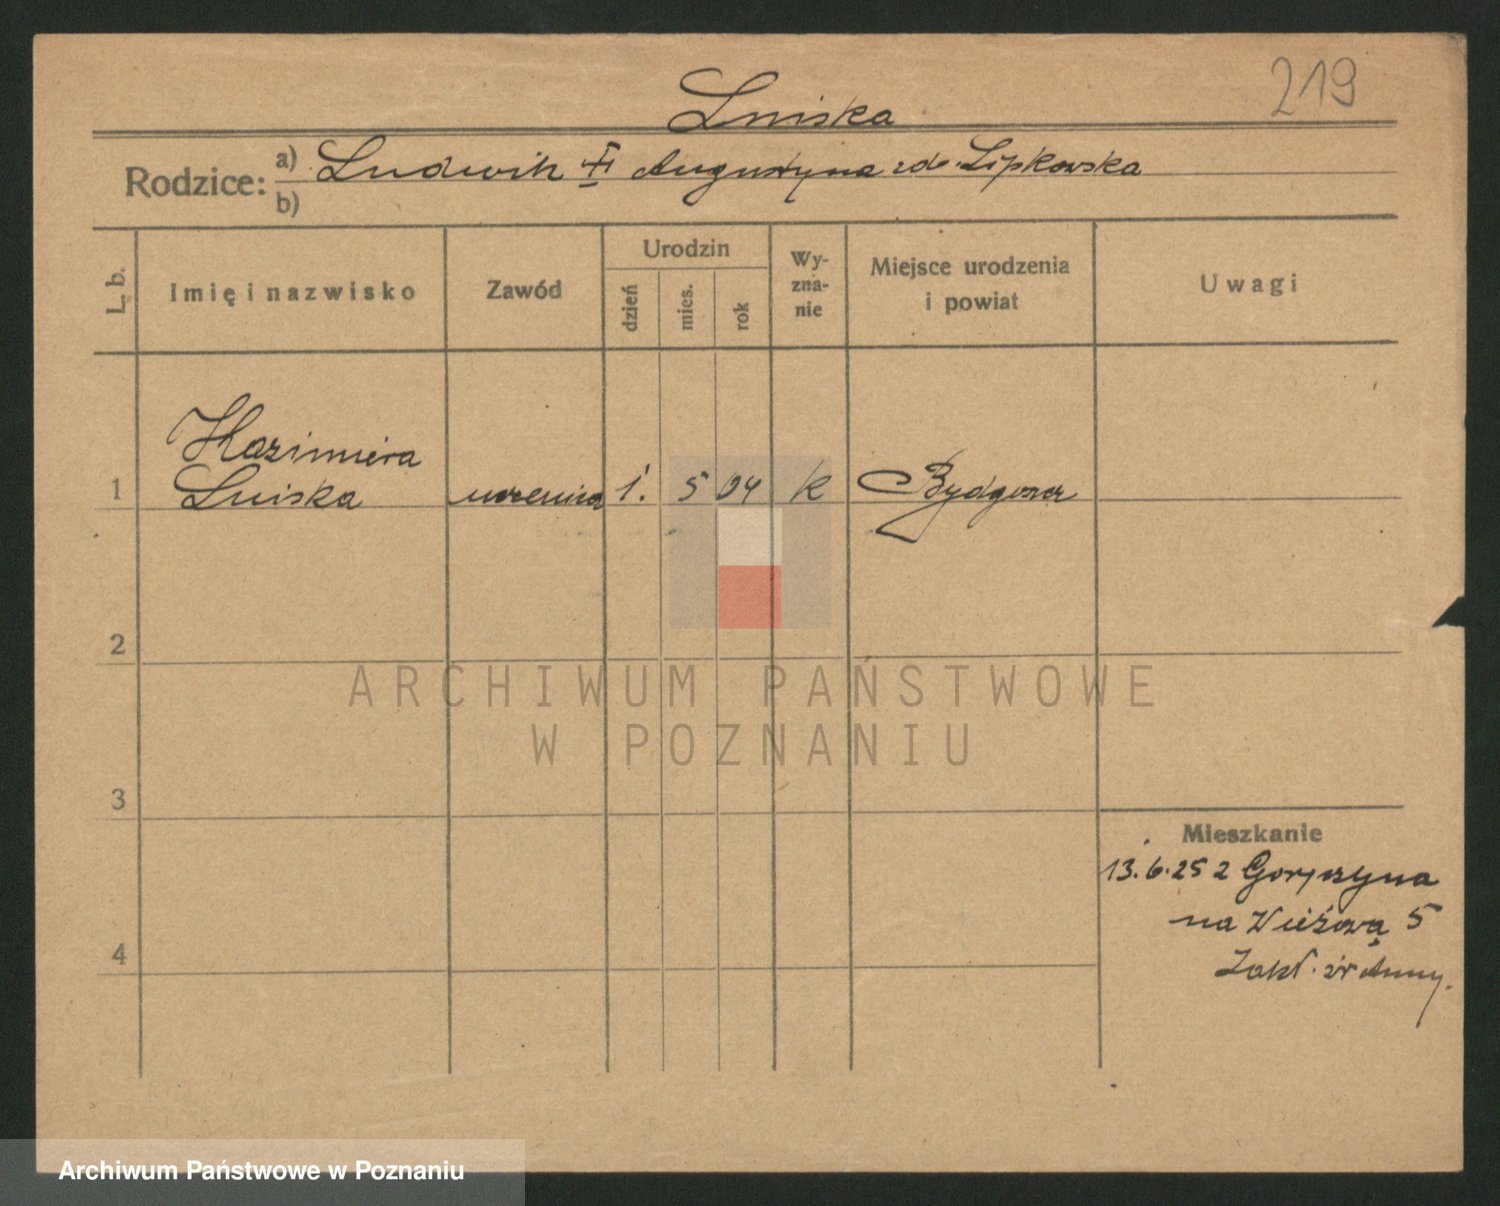 219
Lniska
Rodzice: a) Ludwik Augustyna zd. Lipkowska
b)
L. b.
Imię i nazwisko
Zawód
Urodzin
dzień
mies.
rok
Wy-
zna-
nie
Miejsce urodzenia
i powiat
Uwagi
Kazimiera
1 Lniska uczenica 1. 5 04 K Bydgoszcz
2
3
4
Mieszkanie
13.6.25 z Gorszyna
na Wieżową 5
Zakł. św Anny.
ARCHIWUM PAŃSTWOWE
W POZNANIU
Archiwum Państwowe w Poznaniu